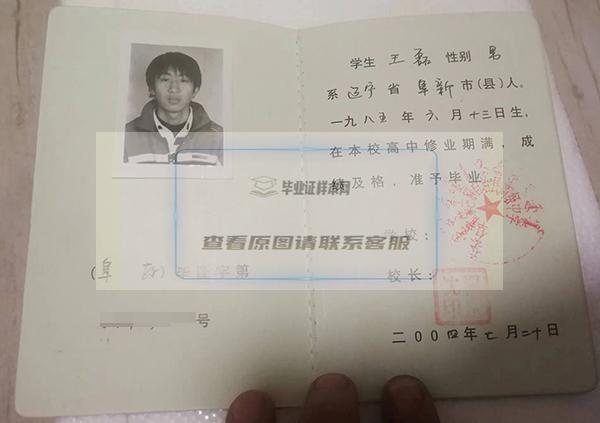 学生 王磊 性别 男
系 辽宁 省 阜新 市(县)人。
一九八五 年 六 月 十三 日生,
在本校高中修业期满,成
绩及格,准予毕业
毕业证样本网
查看原图请联系客服
学校:
(阜 字第
校长:
号
二00四年七月二十日